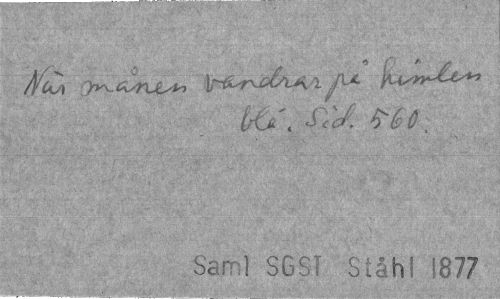 När månen vandrar på himlen
blå. Sid. 560.
Saml SGST Ståhl 1877